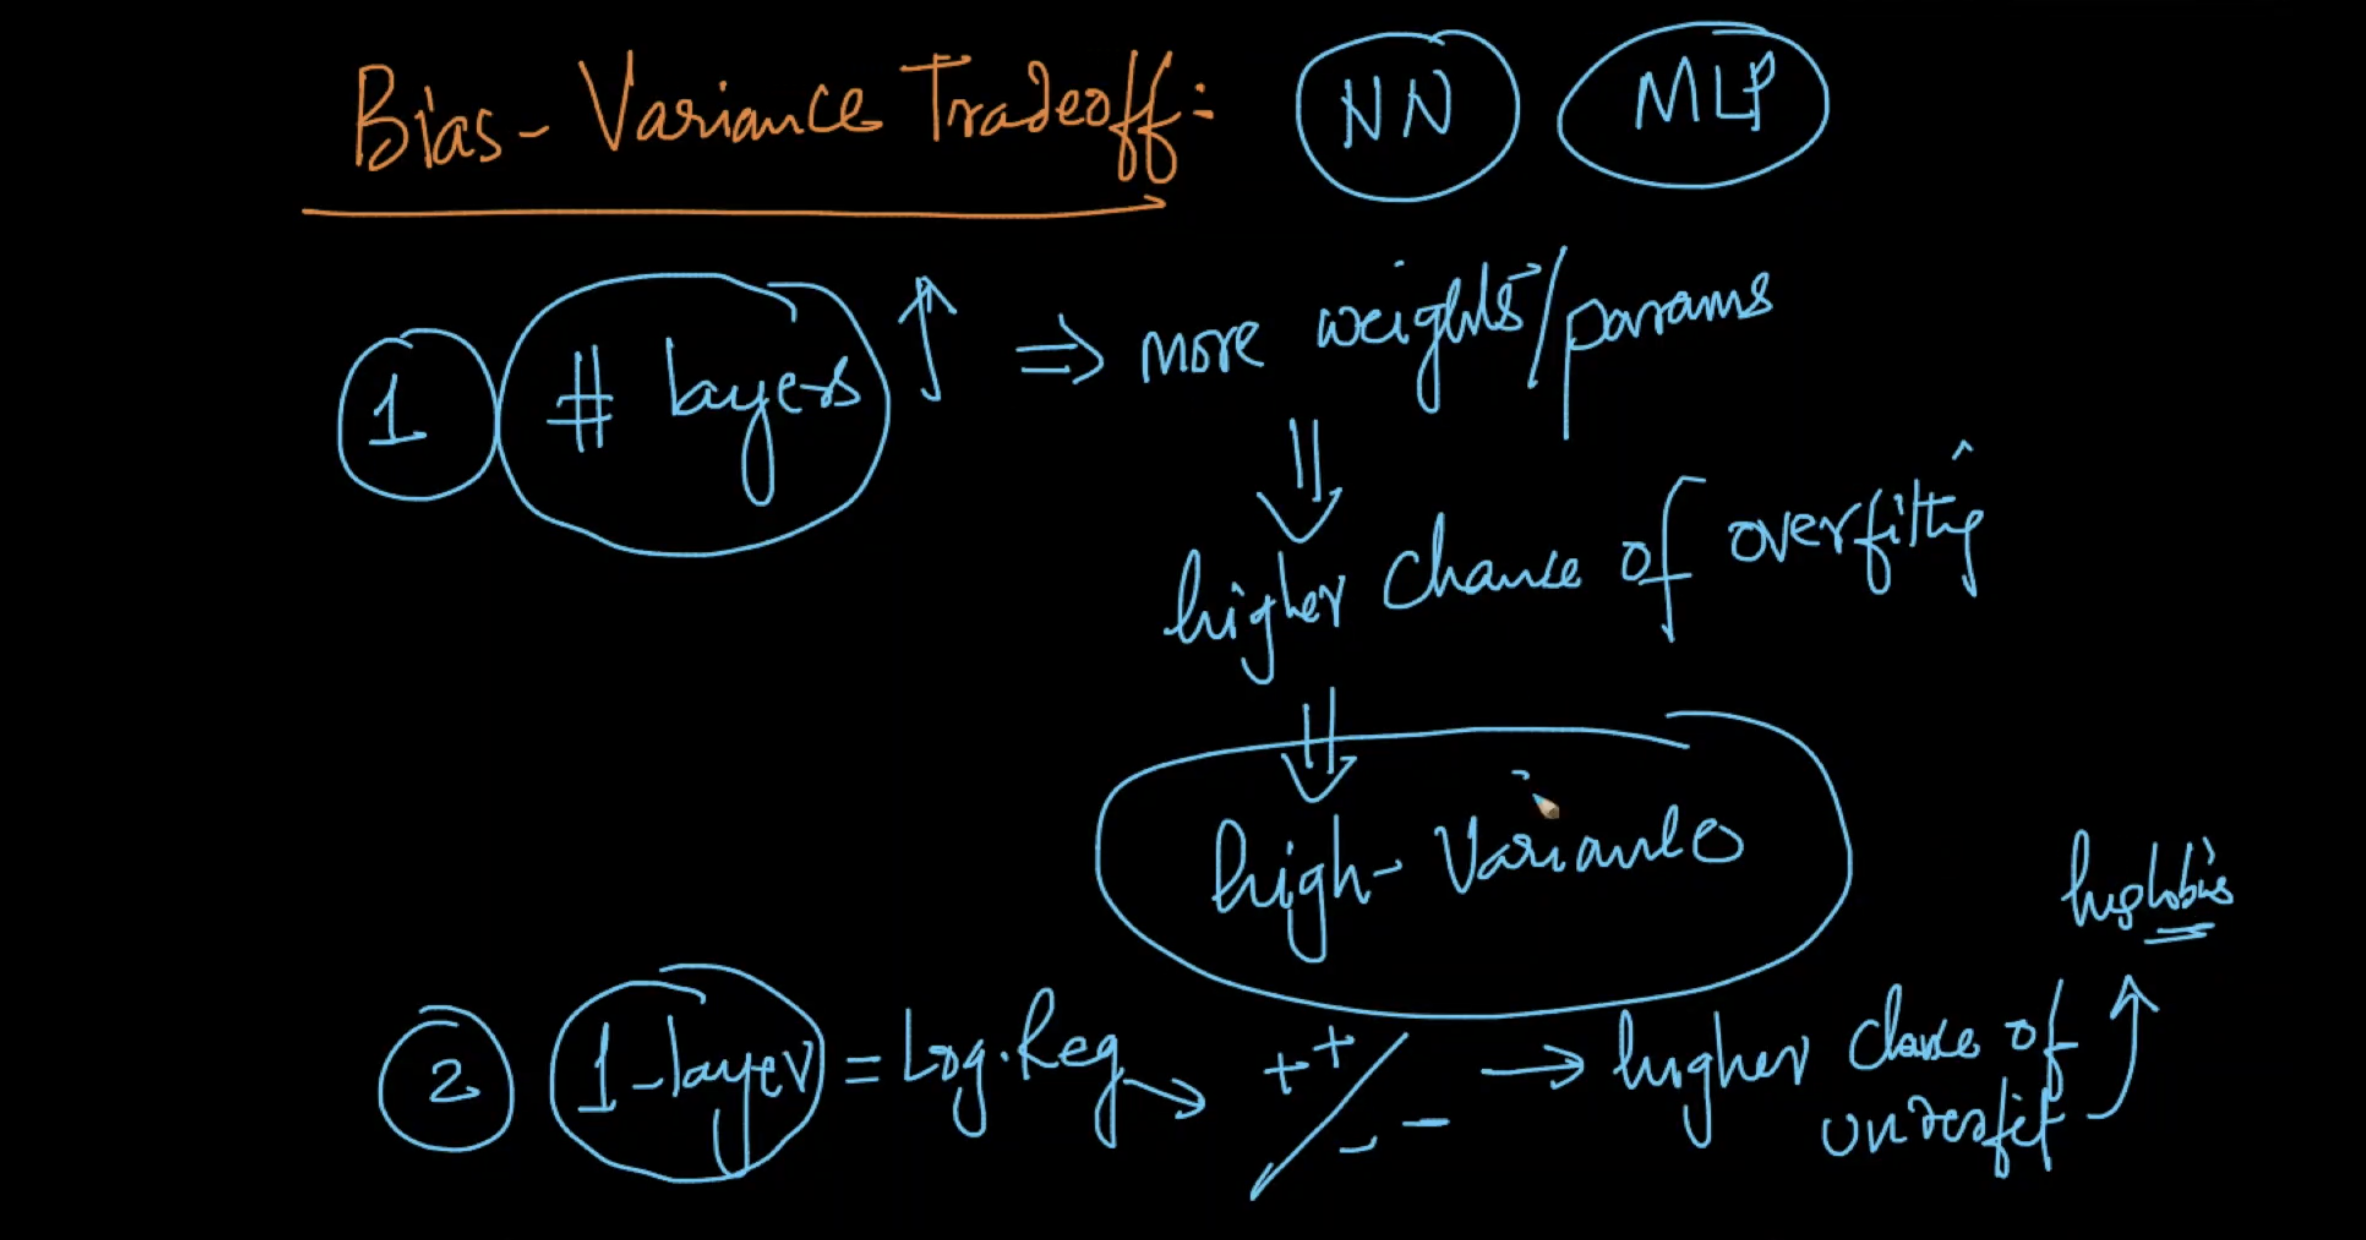 Bias - Variance Tradeoff:- NN MLP
1 # layers ↑ ⇒ more weights/params
⇓
higher chance of overfitting
⇓
high- Variance
high bias
2 1-layer = Log. Reg → + + / - - → higher chance of
underfit